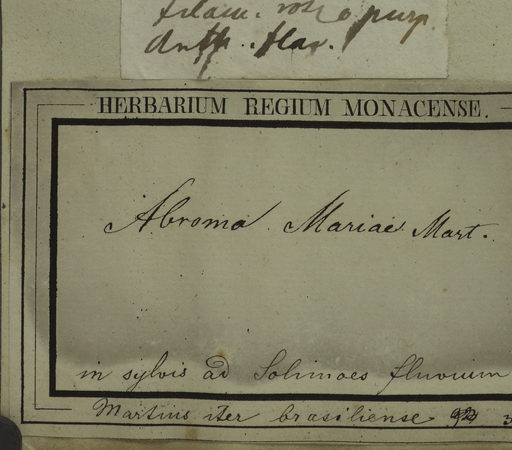 filam. roseo purp.
Anth. flav.
HERBARIUM REGIUM MONACENSE.
Abroma Mariae Mart.
in sylvis ad Solimoes fluvium
Martius iter brasiliense